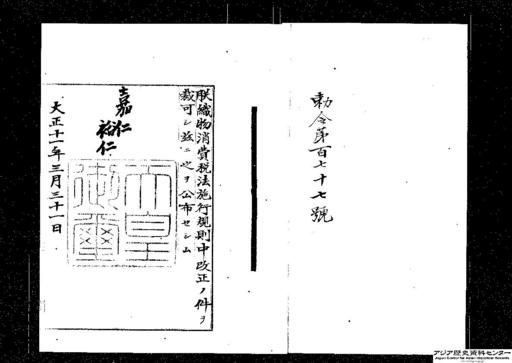 勅令第百七十七號
朕織物消費税法施行規則中改正ノ件ヲ
裁可シ玆ニ之ヲ公布セシム
嘉仁
裕仁
天皇
御璽
大正十一年三月三十一日
アジア歴史資料センター
Japan Center for Asian Historical Records